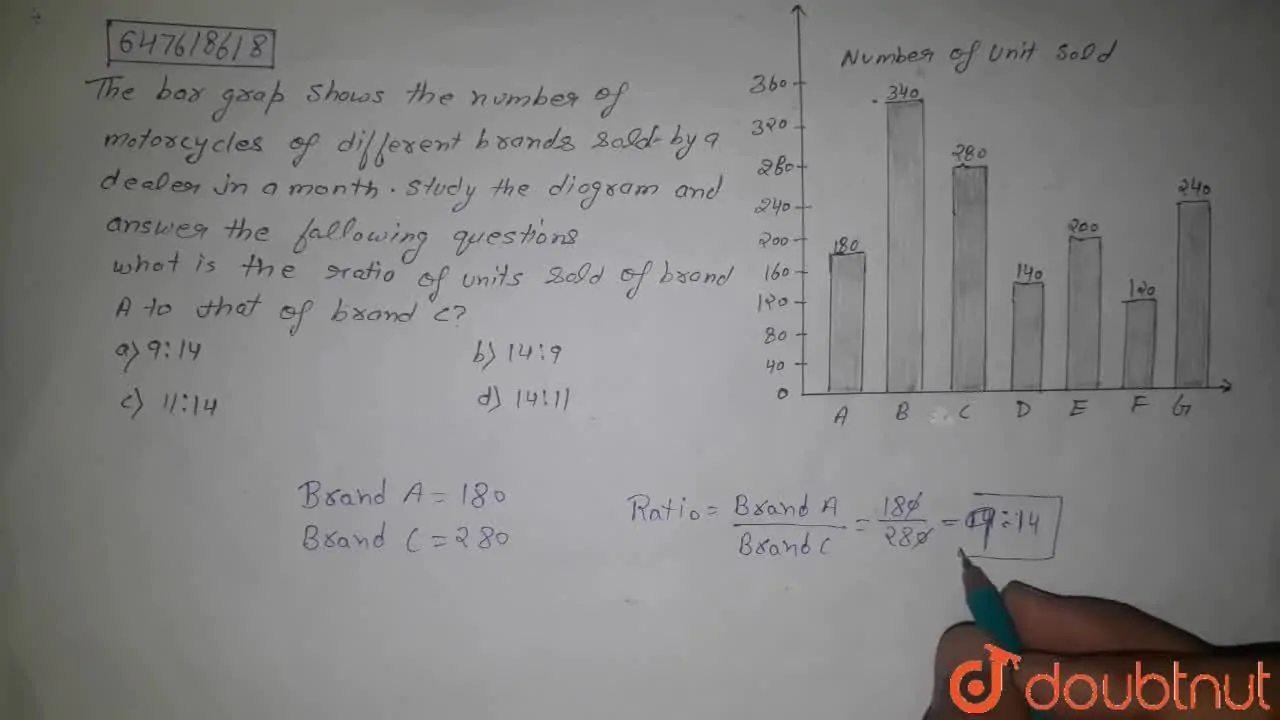 647618618
The bar grap shows the number of
motorcycles of different brands sold by a
dealer in a month. Study the diogram and
answer the fallowing questions
what is the ratio of units sold of brand
A to that of brand C?
a) 9:14
b) 14:9
c) 11:14
d) 14:11
Number of Unit Sold
360
320
280
240
200
160
120
80
40
0
180
340
280
140
200
120
240
A B C D E F G
Brand A = 180
Brand C = 280
Ratio = Brand A / Brand C = 180 / 280 = 9:14
doubtnut